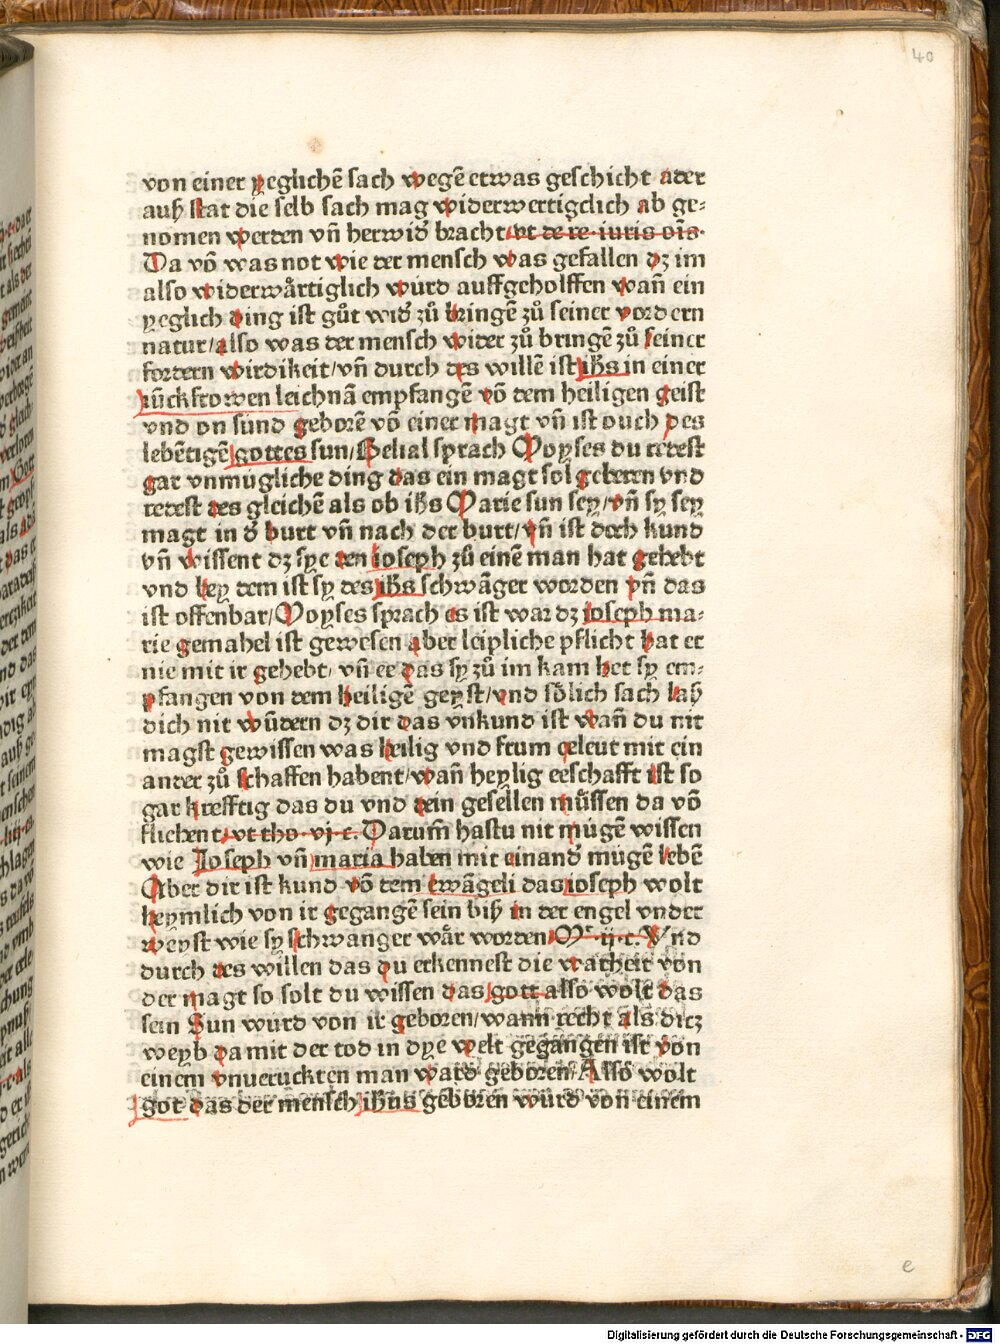 40
von einer yeglichē sach wegē etwas geschicht ader
auß stat die selb sach mag widerwertigclich ab ge⸗
nomen werden vn̄ herwid' bracht/vt de re iuris oīs·
Da vō was not wie der mensch was gefallen dz im
also widerwårtiglich wurd auffgeholffen wan̄ ein
yeglich ding ist gůt wid' zů bringē zů seiner vordern
natur/also was der mensch wider zů bringē zů seiner
fordern wirdikeit/vn̄ durch des willē ist ih̄s in einer
iūckfrowen leichnā empfangē vō dem heiligen geist
vnd on sünd geborē vō einer magt vn̄ ist ouch des
lebētigē gottes sun/Belial sprach Moyses du redest
gar vnmügliche ding das ein magt sol geberen vnd
redest des gleichē als ob ih̄s Marie sun sey/vn̄ sy sey
magt in d' burt vn̄ nach der burt/vn̄ ist doch kund
vn̄ wissent dz sye den ioseph zů einē man hat gehebt
vnd bey dem ist sy des ih̄s schwāger worden vn̄ das
ist offenbar/Moyses sprach es ist war dz ioseph ma⸗
rie gemahel ist gewesen aber leipliche pflicht hat er
nie mit ir gehebt/ vn̄ ee das sy zů im kam het sy em⸗
pfangen von dem heiligē geyst/vnd sölich sach laß
dich nit wūdern dz dir das vnkund ist wan̄ du nit
magst gewissen was heilig vnd frum eeleut mit ein
ander zů schaffen habent/wan̄ heylig eeschafft ist so
gar krefftig das du vnd dein gesellen müssen da vō
fliehen t/vt tho·vj·c. Darum̄ hastu nit mügē wissen
wie Joseph vn̄ maria haben mit einand' mügē lebē
Aber dir ist kund vō dem ewāgeli das ioseph wolt
heymlich von ir gegangē sein biß in der engel vnder
weyst wie sy schwanger wår worden Mͬ·ij·c. Vnd
durch des willen das du erkennest die warheit von
der magt so solt du wissen das gott also wolt das
sein Sun wurd von ir geboren/wann recht als ditz
weyb da mit der tod in dye welt gegangen ist von
einem vnueruckten man ward geboren/Also wolt
got das der mensch ih̄us geboren wurd von einem
e
Digitalisierung gefördert durch die Deutsche Forschungsgemeinschaft - DFG